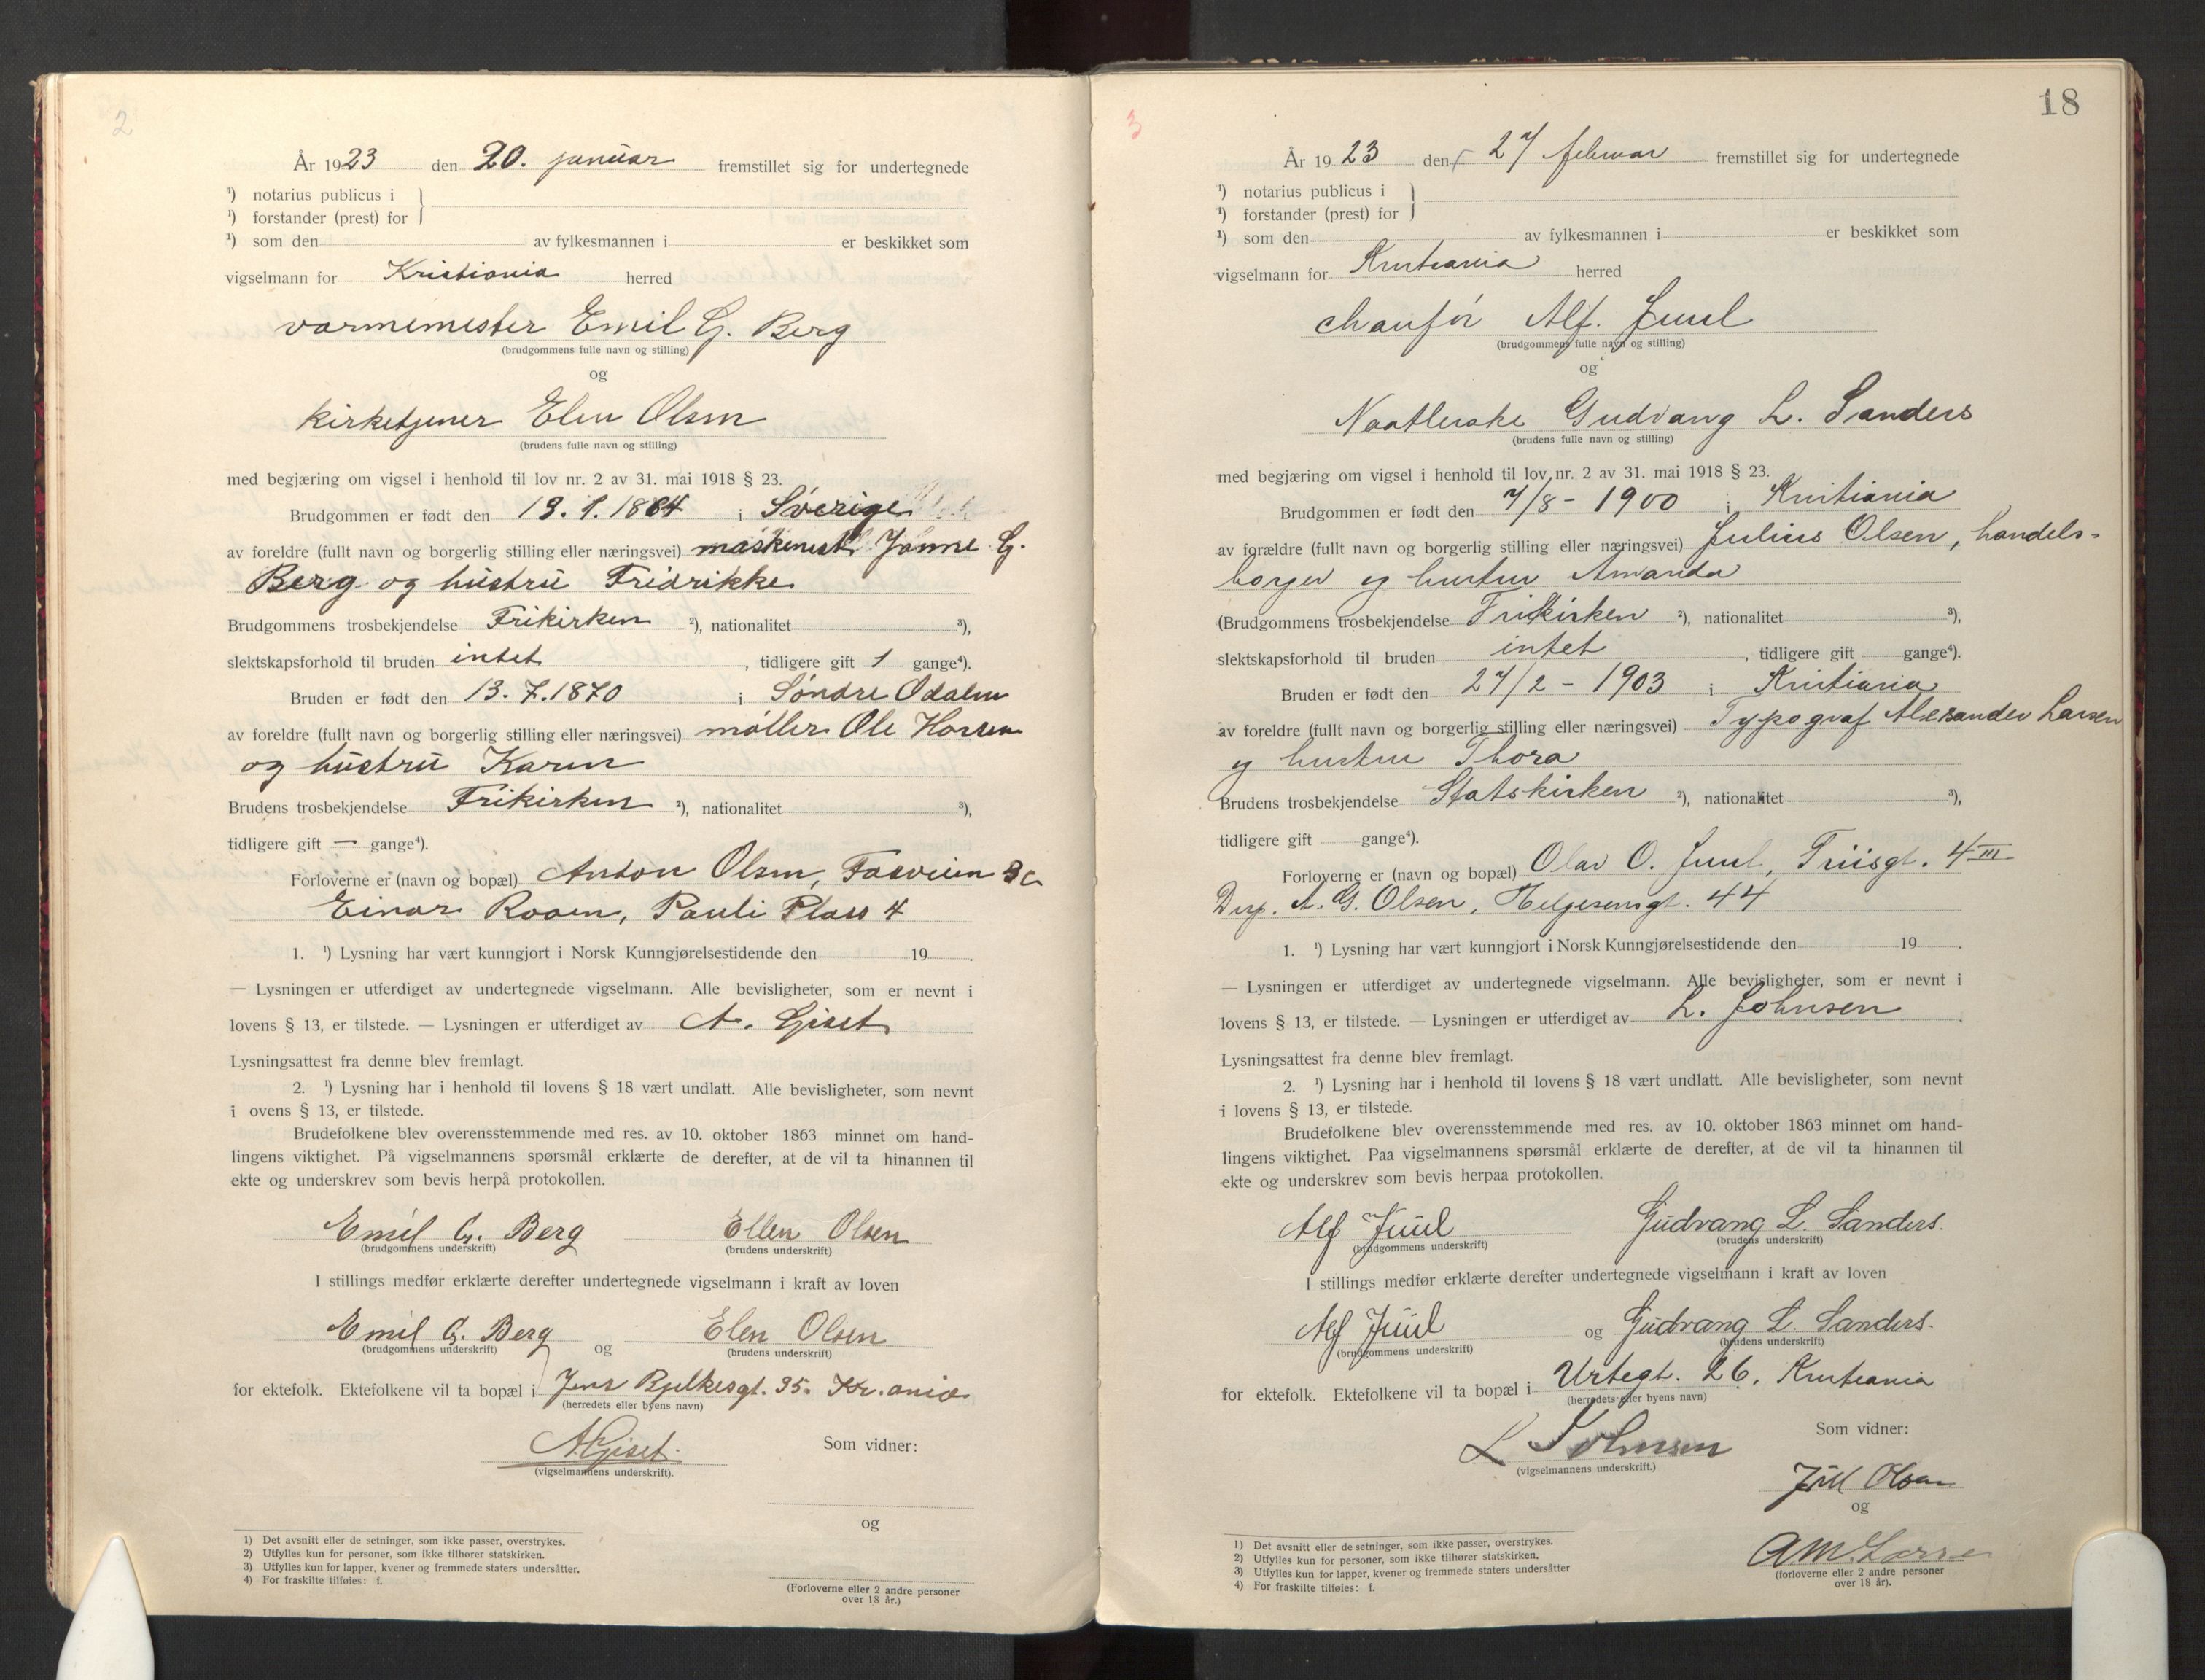 2
År 1923 den 20. januar fremstillet sig for undertegnede
¹) notarius publicus i
¹) forstander (prest) for
¹) som den av fylkesmannen i er beskikket som
vigselmann for Kristiania herred
varmemester Emil G. Berg
(brudgommens fulle navn og stilling)
og
kirketjener Elen Olsen
(brudens fulle navn og stilling)
med begjæring om vigsel i henhold til lov nr. 2 av 31. mai 1918 § 23.
Brudgommen er født den 13. 1. 1884 i Sverige
av foreldre (fullt navn og borgerlig stilling eller næringsvei) maskinist Janne G.
Berg og hustru Fridrikke
Brudgommens trosbekjendelse Frikirken ²), nationalitet ³),
slektskapsforhold til bruden intet, tidligere gift 1 gange⁴).
Bruden er født den 13. 7. 1870 i Søndre Odalen
av foreldre (fullt navn og borgerlig stilling eller næringsvei) møller Ole Hansen
og hustru Karen
Brudens trosbekjendelse Frikirken ²), nationalitet ³),
tidligere gift — gange⁴).
Forloverne er (navn og bopæl) Anton Olsen,
Einar Roaen, Pauli Plass 4
1. ¹) Lysning har vært kunngjort i Norsk Kunngjørelsestidende den 19 .
— Lysningen er utferdiget av undertegnede vigselmann. Alle bevisligheter, som er nevnt i
lovens § 13, er tilstede. — Lysningen er utferdiget av A. Giset
Lysningsattest fra denne blev fremlagt.
2. ¹) Lysning har i henhold til lovens § 18 vært undlatt. Alle bevisligheter, som nevnt
i ovens § 13, er tilstede.
Brudefolkene blev overensstemmende med res. av 10. oktober 1863 minnet om hand-
lingens viktighet. På vigselmannens spørsmål erklærte de derefter, at de vil ta hinannen til
ekte og underskrev som bevis herpå protokollen.
Emil G. Berg Ellen Olsen
(brudgommens underskrift) (brudens underskrift)
I stillings medfør erklærte derefter undertegnede vigselmann i kraft av loven
Emil G. Berg og Elen Olsen
(brudgommens underskrift) (brudens underskrift)
for ektefolk. Ektefolkene vil ta bopæl i Jens Bjelkesgt. 35. Kr.ania
(herredets eller byens navn)
A Giset. Som vidner:
(vigselmannens underskrift).
og
1) Det avsnitt eller de setninger, som ikke passer, overstrykes.
2) Utfylles kun for personer, som ikke tilhører statskirken.
3) Utfylles kun for lapper, kvener og fremmede staters undersåtter.
4) For fraskilte tilføies: f.
(Forloverne eller 2 andre personer
over 18 år.)
3
18
År 1923 den 27 februar fremstillet sig for undertegnede
¹) notarius publicus i
¹) forstander (prest) for
¹) som den av fylkesmannen i er beskikket som
vigselmann for Kristiania herred
chaufør Alf. Juul
(brudgommens fulle navn og stilling)
og
Naatlerske Gudvang L. Sanders
(brudens fulle navn og stilling)
med begjæring om vigsel i henhold til lov nr. 2 av 31. mai 1918 § 23.
Brudgommen er født den 7/8 - 1900 i Kristiania
av forældre (fullt navn og borgerlig stilling eller næringsvei) Julius Olsen, handels-
borger og hustru Amanda
(Brudgommens trosbekjendelse Frikirken ²), nationalitet ³),
slektskapsforhold til bruden intet, tidligere gift gange⁴).
Bruden er født den 27/2 - 1903 i Kristiania
av foreldre (fullt navn og borgerlig stilling eller næringsvei) Typograf Alexander Larsen
og hustru Thora
Brudens trosbekjendelse Statskirken ²), nationalitet ³),
tidligere gift gange⁴).
Forloverne er (navn og bopæl) Olav O. Juul, Friisgt. 4 III
Disp. A. G. Olsen, Helgesensgt. 44
1. ¹) Lysning har vært kunngjort i Norsk Kunngjørelsestidende den 19 .
— Lysningen er utferdiget av undertegnede vigselmann. Alle bevisligheter, som er nevnt i
lovens § 13, er tilstede. — Lysningen er utferdiget av L. Johnsen
Lysningsattest fra denne blev fremlagt.
2. ¹) Lysning har i henhold til lovens § 18 vært undlatt. Alle bevisligheter, som nevnt
i lovens § 13, er tilstede.
Brudefolkene blev overensstemmende med res. av 10. oktober 1863 minnet om hand-
lingens viktighet. Paa vigselmannens spørsmål erklærte de derefter, at de vil ta hinannen til
ekte og underskrev som bevis herpaa protokollen.
Alf Juul Gudvang L. Sanders.
(brudgommens underskrift) (brudens underskrift)
I stillings medfør erklærte derefter undertegnede vigselmann i kraft av loven
Alf Juul og Gudvang L. Sanders.
(brudgommens underskrift) (brudens underskrift)
for ektefolk. Ektefolkene vil ta bopæl i Urtegt. 26, Kristiania
(herredets eller byens navn)
L Johnsen Som vidner:
(vigselmannens underskrift.)
Olsen
og
A M Larsen
1) Det avsnitt eller de setninger, som ikke passer, overstrykes.
2) Utfylles kun for personer, som ikke tilhører statskirken.
3) Utfylles kun for lapper, kvener og fremmede staters undersåtter
4) For fraskilte tilføies: f.
(forloverne eller 2 andre personer
over 18 år).